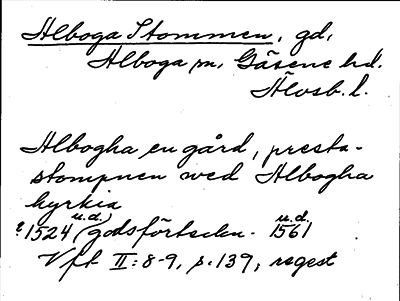 Alboga Stommen, gd,
Alboga sn, Gäsene hd.
Älvsb. l.
Albogha en gård, presta-
stompnen wed Albogha
kyrkia
u.d.) u.d.
?1524 (godsförteckn. 1561
Vft II: 8-9, s. 139, regest